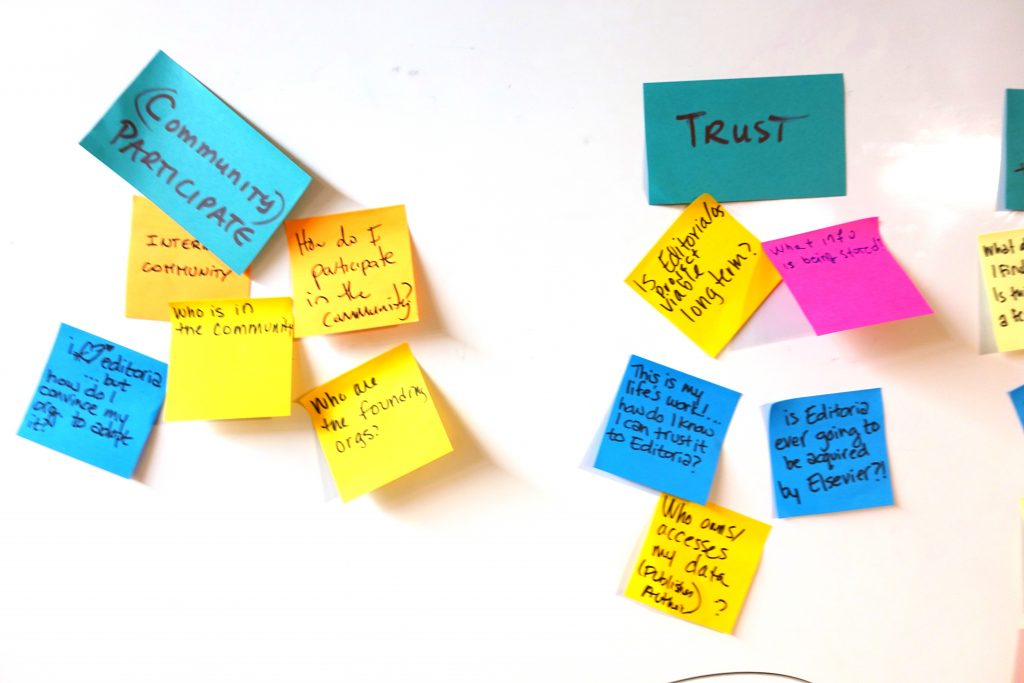 (Community)
PARTICIPATE
INTER
COMMUNITY
How do I
participate
in the
community?
Who is in
the community
i ♡ editoria
... but
how do I
convince my
org to adopt
it?
Who are
the founding
orgs?
TRUST
Is Editoria as
project
viable
long term?
What info
is being stored?
This is my
life's work!...
how do I know
I can trust it
to Editoria?
is Editoria
ever going to
be acquired
by Elsevier?!
Who owns/
accesses
my data
(Publisher
Author) ?
What
I find
Is th
a te